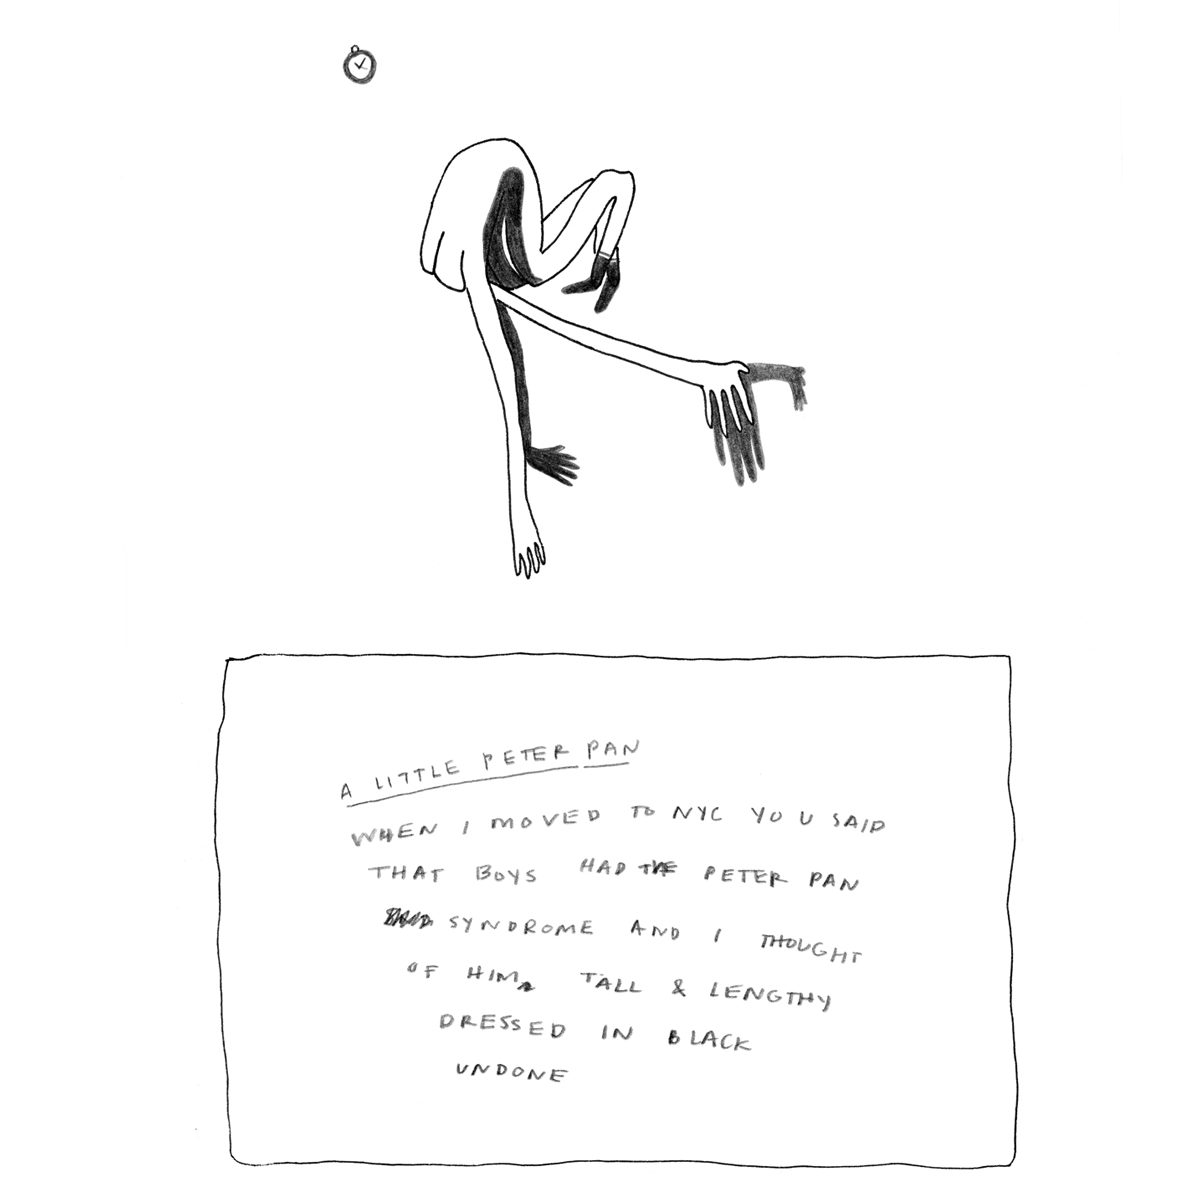 A LITTLE PETER PAN
WHEN I MOVED TO NYC YOU SAID
THAT BOYS HAD THE PETER PAN
SYNDROME AND I THOUGHT
OF HIM, TALL & LENGTHY
DRESSED IN BLACK
UNDONE